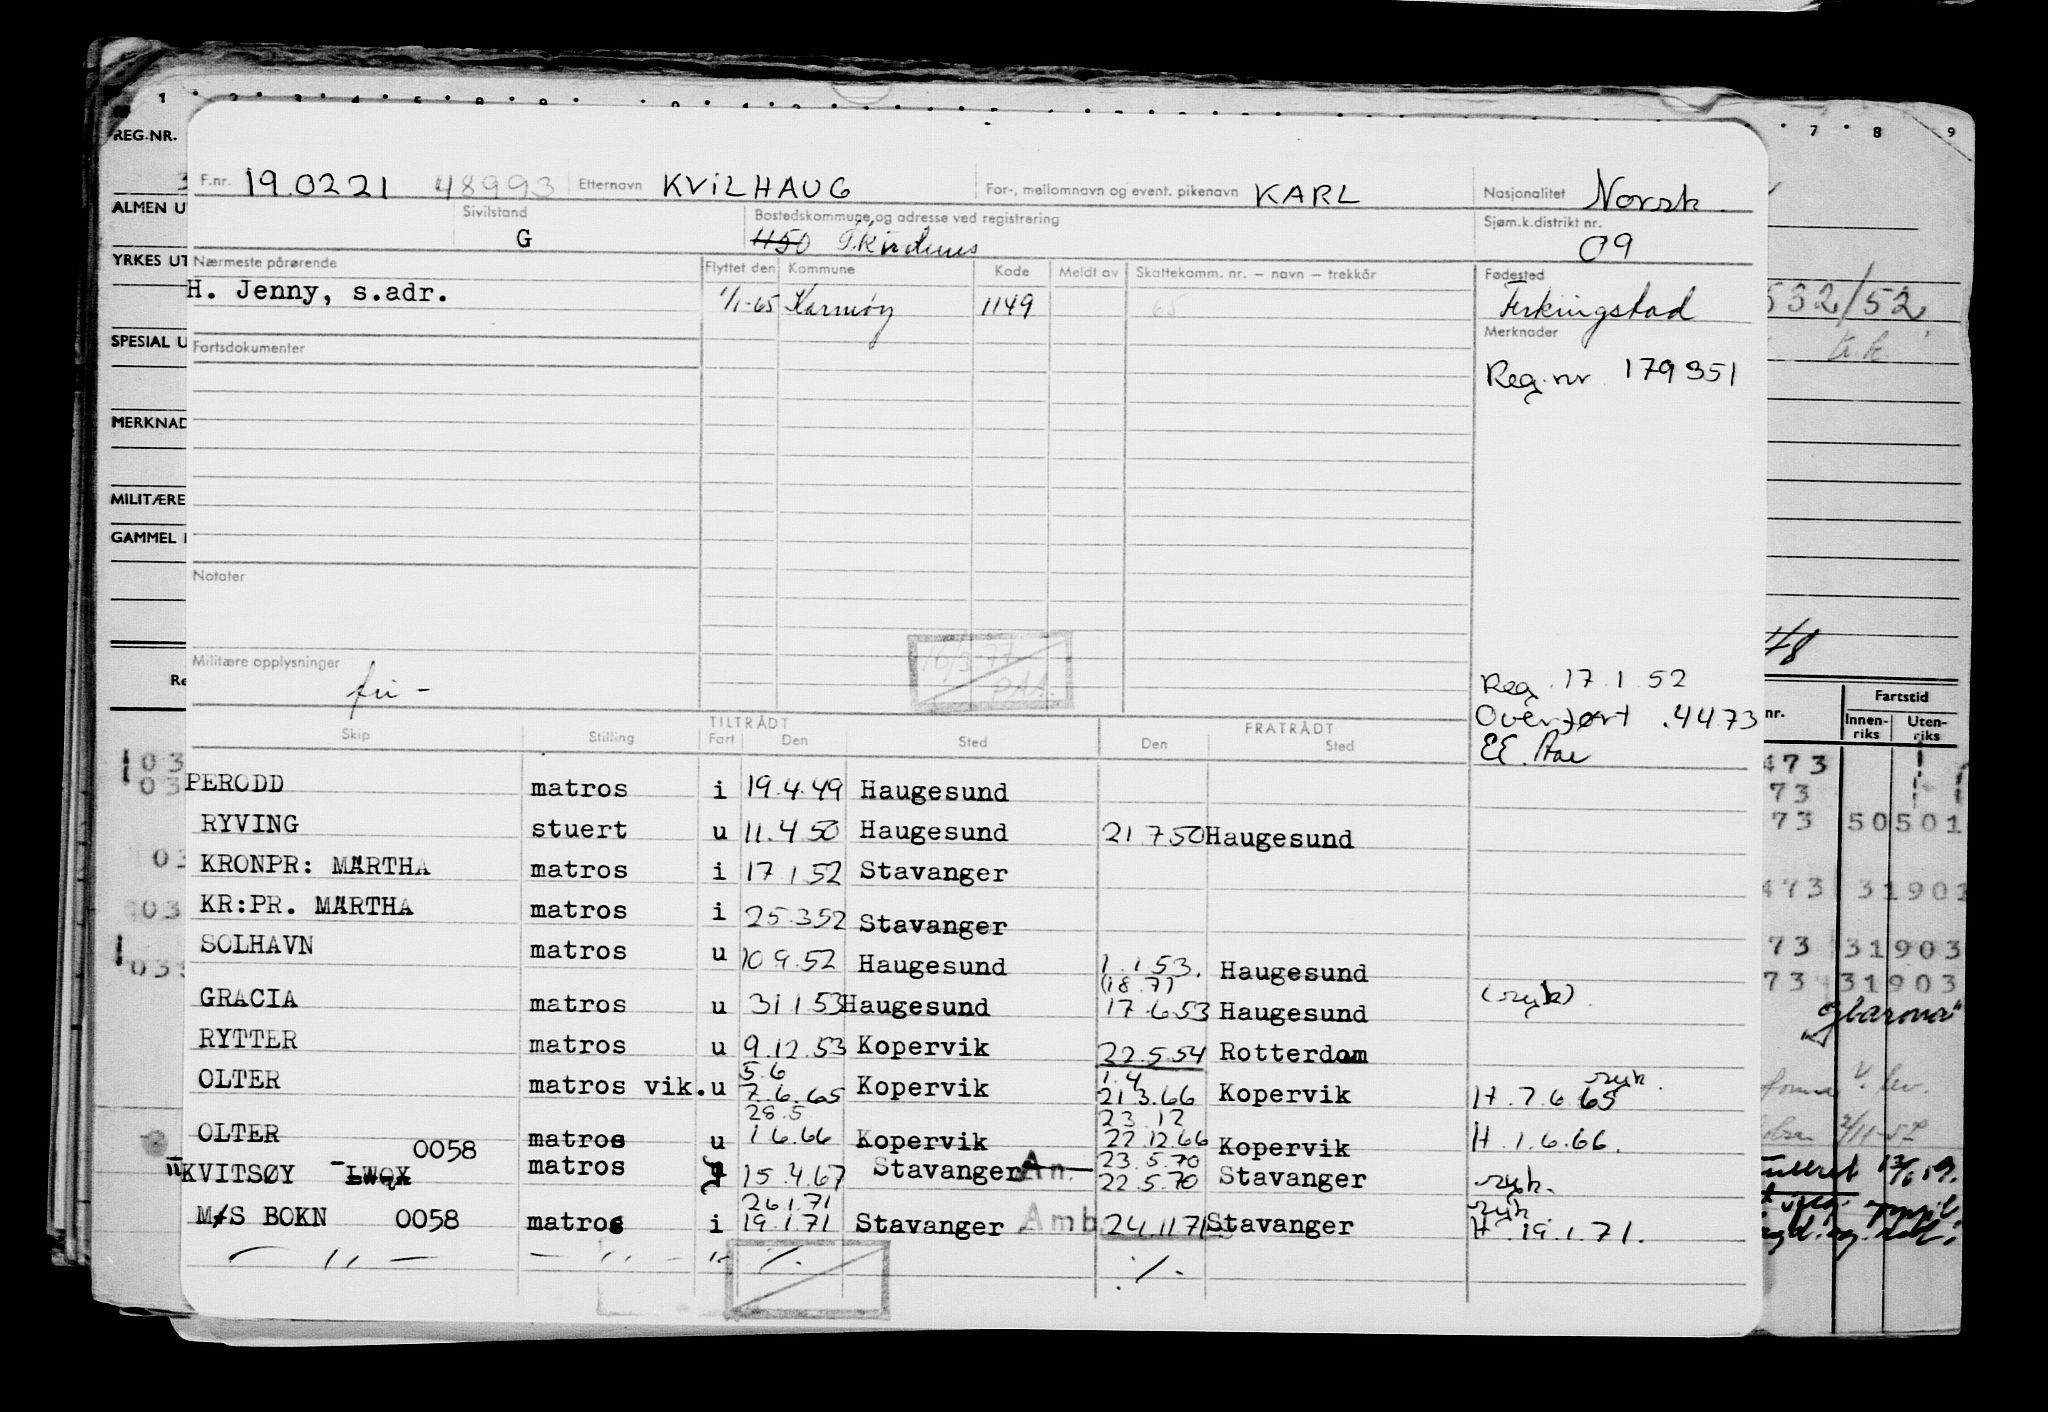 REG.NR.
F.nr. 19.0221 48993 Etternavn KVILHAUG For-, mellomnavn og event. pikenavn KARL Nasjonalitet Norsk.
ALMEN U
Sivilstand G Bostedskommune og adresse ved registrering 1150 Sjøm.k.distrikt nr. 09
YRKES UT
Nærmeste pårørende Flyttet den Kommune Kode Meldt av Skattekomm. nr. – navn – trekkår Fødested
H. Jenny, s.adr. 1/1-65 Karmøy 1149 65 Ferkingstad
532/52
SPESIAL U
Fartsdokumenter Merknader
Reg.nr 179351
MERKNAD
MILITÆRE
GAMMEL
Notater
16/3-77
PAA.
Militære opplysninger
fri -
Reg. 17.1.52
Overført .4473
EE. Aae
48
Fartstid
nr. Innen-riks Uten-riks
TILTRÅDT FRATRÅDT
Skip Stilling Fart Den Sted Den Sted
PERODD matros i 19.4.49 Haugesund
RYVING stuert u 11.4.50 Haugesund 21.7.50 Haugesund
KRONPR: MÄRTHA matros i 17.1.52 Stavanger
KR:PR. MÄRTHA matros i 25.3.52 Stavanger
SOLHAVN matros u 10.9.52 Haugesund 1.1.53. Haugesund
(18.7)
GRACIA matros u 31.1.53 Haugesund 17.6.53 Haugesund (syk).
RYTTER matros u 9.12.53 Kopervik 22.5.54 Rotterdam
5.6 1.4 syk.
OLTER matros vik. u 7.6.65 Kopervik 21.3.66 Kopervik H.7.6.65
28.5 23.12
OLTER matros u 1.6.66 Kopervik 22.12.66 Kopervik H.1.6.66.
0058 23.5.70
"KVITSØY LWQX matros i 15.4.67 Stavanger An. 22.5.70 Stavanger syk.
26.1.71 syk
M/S BOKN 0058 matros i 19.1.71 Stavanger Amb 24.11.71 Stavanger H.19.1.71.
— " — — " — " ./. ./.
473
73
73 50501
473 31901
73 31903
73 31903